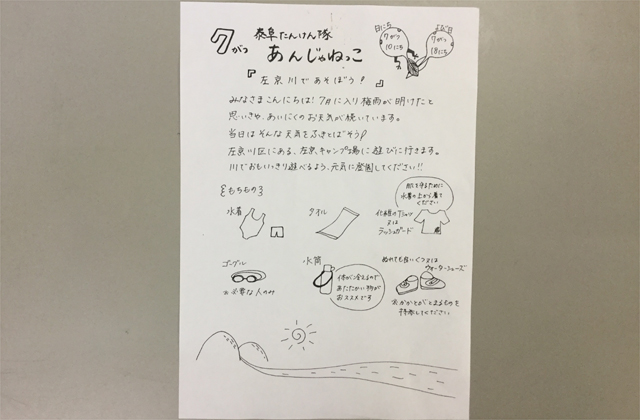 7がつ
泰阜たんけん隊
あんじゃねっこ
日にち
7がつ
10にち
よび日
7がつ
18にち
『左京川であそぼう!』
みなさまこんにちは!7月に入り梅雨が明けたと
思いきや、あいにくのお天気が続いています。
当日はそんな天気をふきとばそう!
左京川区にある、左京キャンプ場に遊びに行きます。
川でおもいっきり遊べるよう、元気に登園してください!!
もちもの
水着
タオル
化繊のTシャツ
又は
ラッシュガード
肌を守るために
水着の上から着て
ください
ゴーグル
※必要な人のみ
水筒
体が冷えるので
あたたかい物が
おススメです
ぬれても良いくつ又は
ウォーターシューズ
※かかとがとまるものを
持参してください